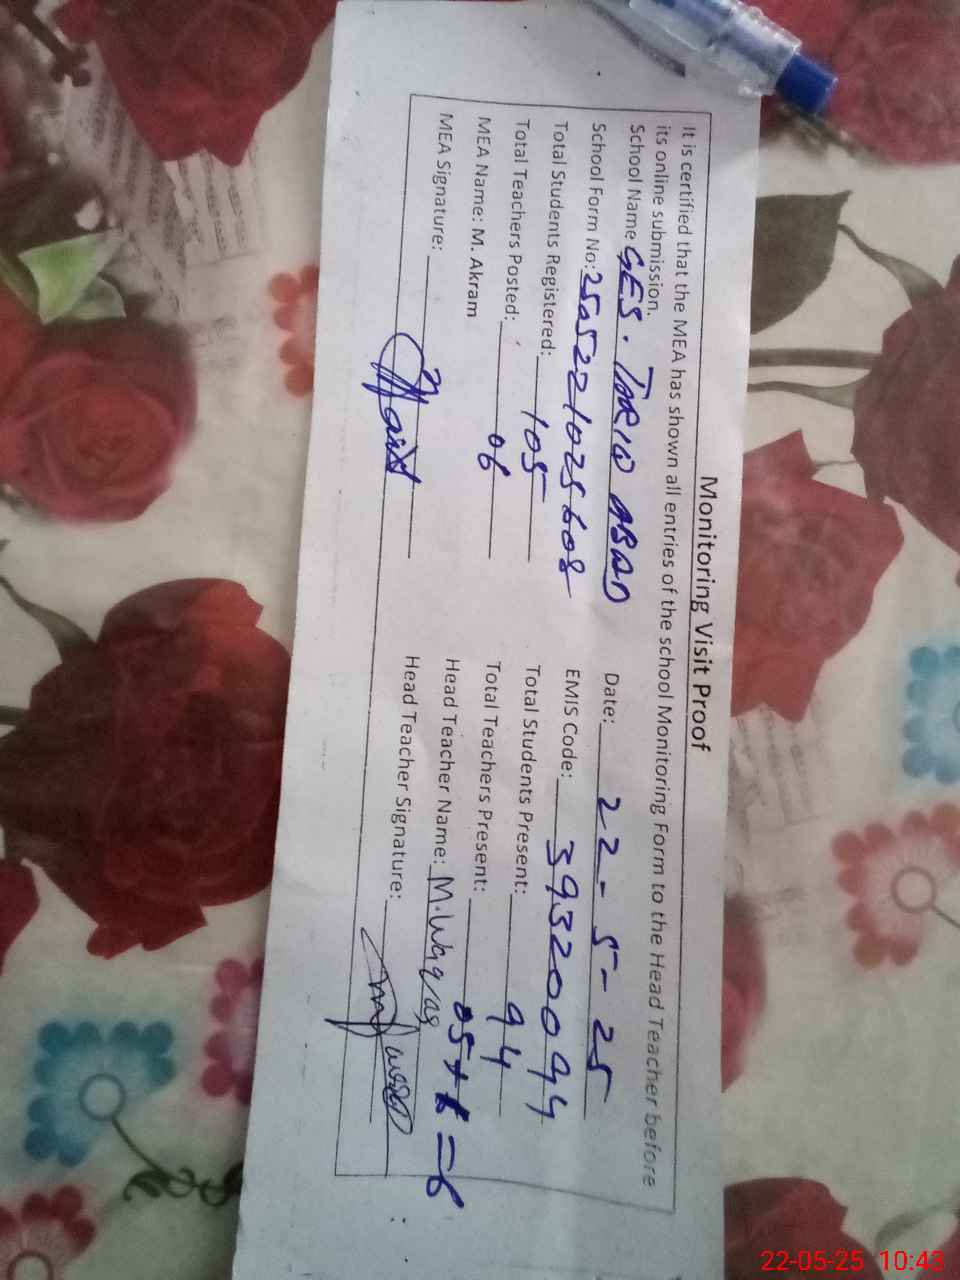 Monitoring Visit Proof
It is certified that the MEA has shown all entries of the school Monitoring Form to the Head Teacher before
its online submission.
School Name GES. TARIQ ABAD Date: 22-5-25
School Form No: 2505221025608 EMIS Code: 39320094
Total Students Registered: 105 Total Students Present: 94
Total Teachers Posted: 06 Total Teachers Present: 05+1=6
MEA Name: M. Akram Head Teacher Name: M.Waqas
MEA Signature: Head Teacher Signature:
22-05-25 10:43